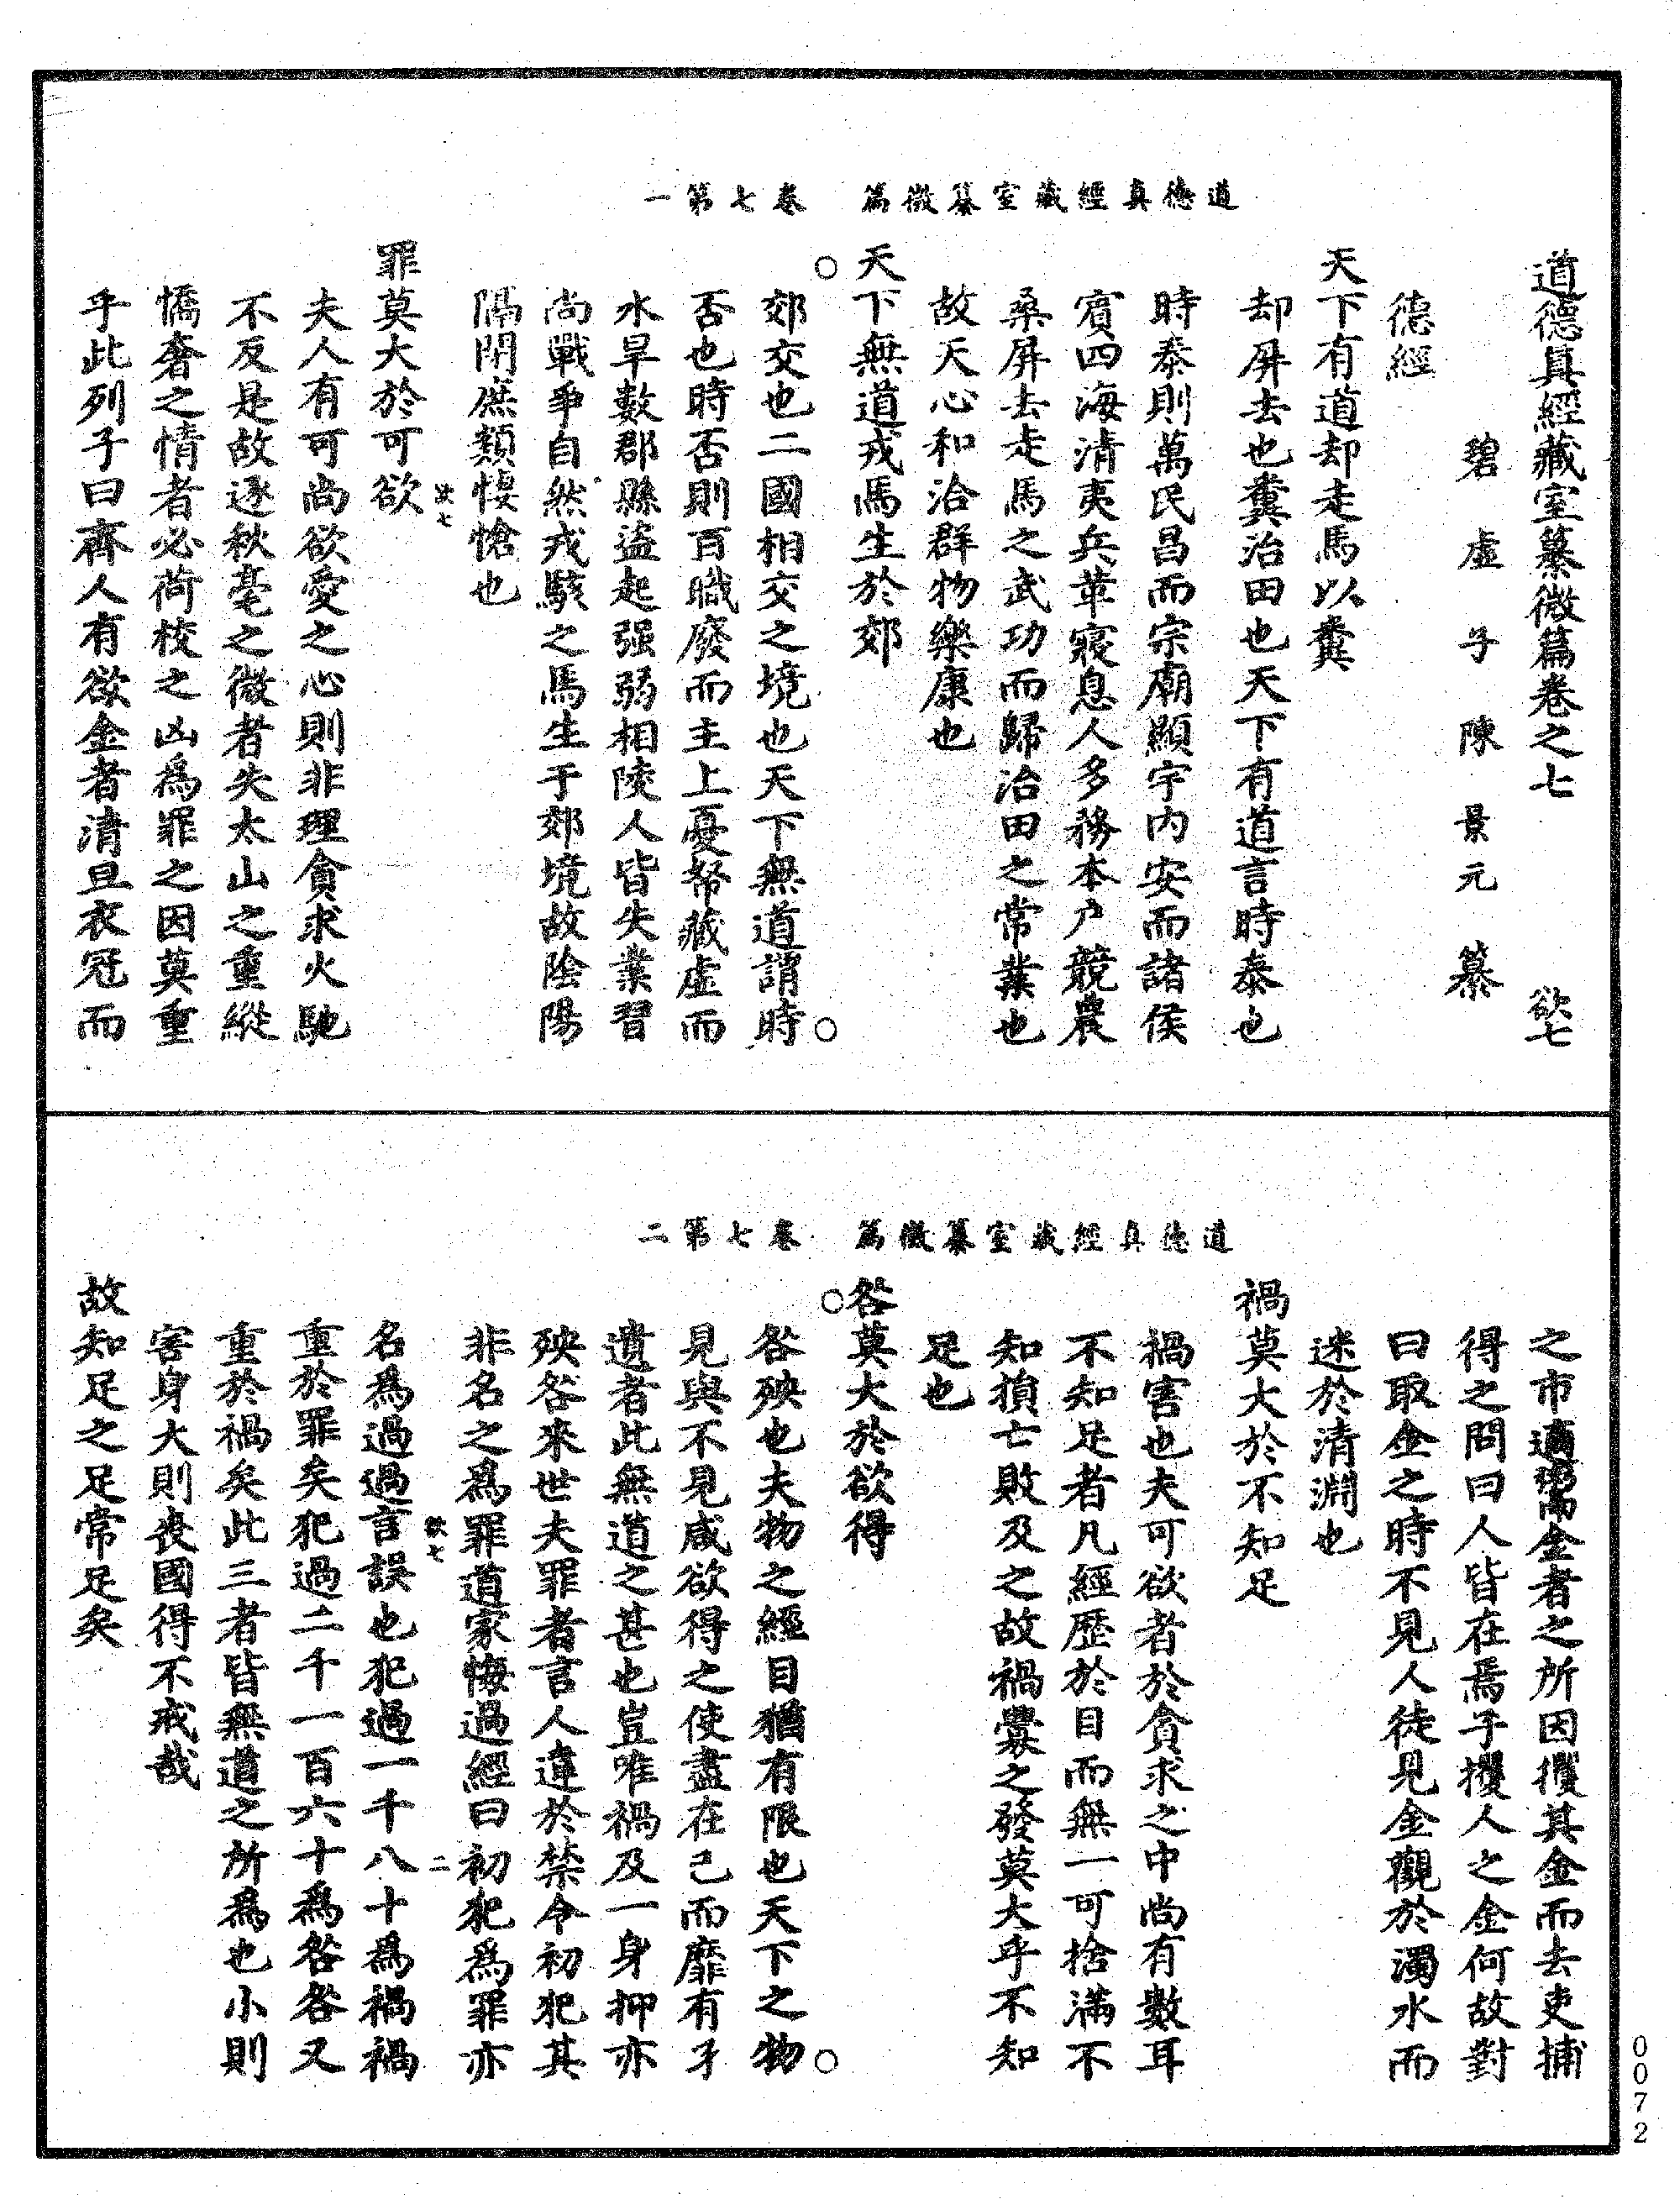 道德真經藏室纂微篇　卷七第一
道德真經藏室纂微篇卷之七　欲七
碧虛子陳景元纂
德經
天下有道却走馬以糞
却屏去也糞治田也天下有道言時泰也
時泰則萬民昌而宗廟顯宇內安而諸侯
賓四海清夷兵革寢息人多務本户競農
桑屏去走馬之武功而歸治田之常業也
故天心和洽群物樂康也
天下無道戎馬生於郊
郊交也二國相交之境也天下無道謂時
否也時否則百職廢而主上憂帑藏虛而
水旱數郡縣盜起强弱相陵人皆失業習
尚戰爭自然戎駭之馬生于郊境故陰陽
隔閉庶類悽愴也
欲七
罪莫大於可欲
夫人有可尚欲愛之心則非理貪求火馳
不反是故逐秋毫之微者失太山之重縱
憍奢之情者必荷校之凶爲罪之因莫重
乎此列子曰齊人有欲金者清旦衣冠而
道德真經藏室纂微篇　卷七第二
之市適鬻金者之所因攫其金而去吏捕
得之問曰人皆在焉子攫人之金何故對
曰取金之時不見人徒見金觀於濁水而
迷於清淵也
禍莫大於不知足
禍害也夫可欲者於貪求之中尚有數耳
不知足者凡經歷於目而無一可捨滿不
知損亡敗及之故禍釁之發莫大乎不知
足也
咎莫大於欲得
咎殃也夫物之經目猶有限也天下之物
見與不見咸欲得之使盡在己而靡有孑
遺者此無道之甚也豈唯禍及一身抑亦
殃咎來世夫罪者言人違於禁令初犯其
非名之爲罪道家悔過經曰初犯爲罪亦
欲七　二
名爲過過言誤也犯過一千八十爲禍禍
重於罪矣犯過二千一百六十爲咎咎又
重於禍矣此三者皆無道之所爲也小則
害身大則喪國得不戒哉
故知足之足常足矣
0072